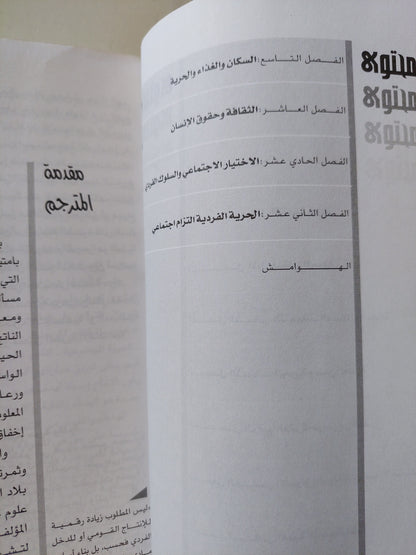 محتوى
محتوى
محتوى
الفصل التاسع: السكان والغذاء والحرية
الفصل العاشر: الثقافة وحقوق الانسان
الفصل الحادي عشر: الاختيار الاجتماعي والسلوك الفردي
الفصل الثاني عشر: الحرية الفردية التزام اجتماعي
الهوامش
مقدمة
المترجم
بامتيا
التي
مسأل
ومع
الناتج
الحيا
الواس
ورعا
المعلوم
إخفاق
وا
وثمرة
بلاد ا
علوم ع
المؤلف
لتشم
ليس المطلوب زيادة رقمية
للإنتاج القومي أو للدخل
الفردي فحسب، بل بناء